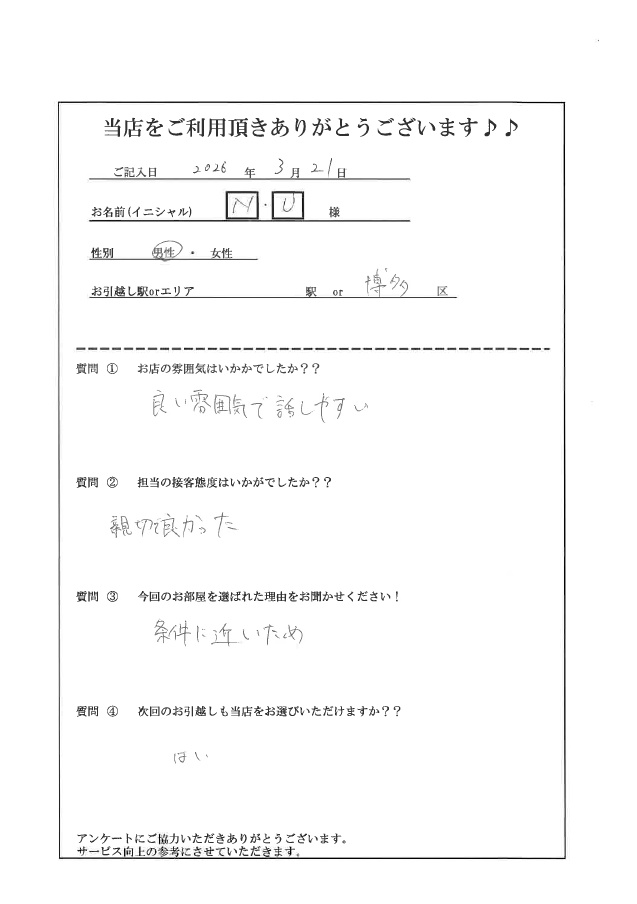 当店をご利用頂きありがとうございます♪♪
ご記入日 2026 年 3 月 21 日
お名前(イニシャル) N・U 様
性別 男性 ・ 女性
お引越し駅orエリア 駅 or 博多 区
質問 ① お店の雰囲気はいかかでしたか？？
良い雰囲気で話しやすい
質問 ② 担当の接客態度はいかがでしたか？？
親切で良かった
質問 ③ 今回のお部屋を選ばれた理由をお聞かせください！
条件に近いため
質問 ④ 次回のお引越しも当店をお選びいただけますか？？
はい
アンケートにご協力いただきありがとうございます。
サービス向上の参考にさせていただきます。